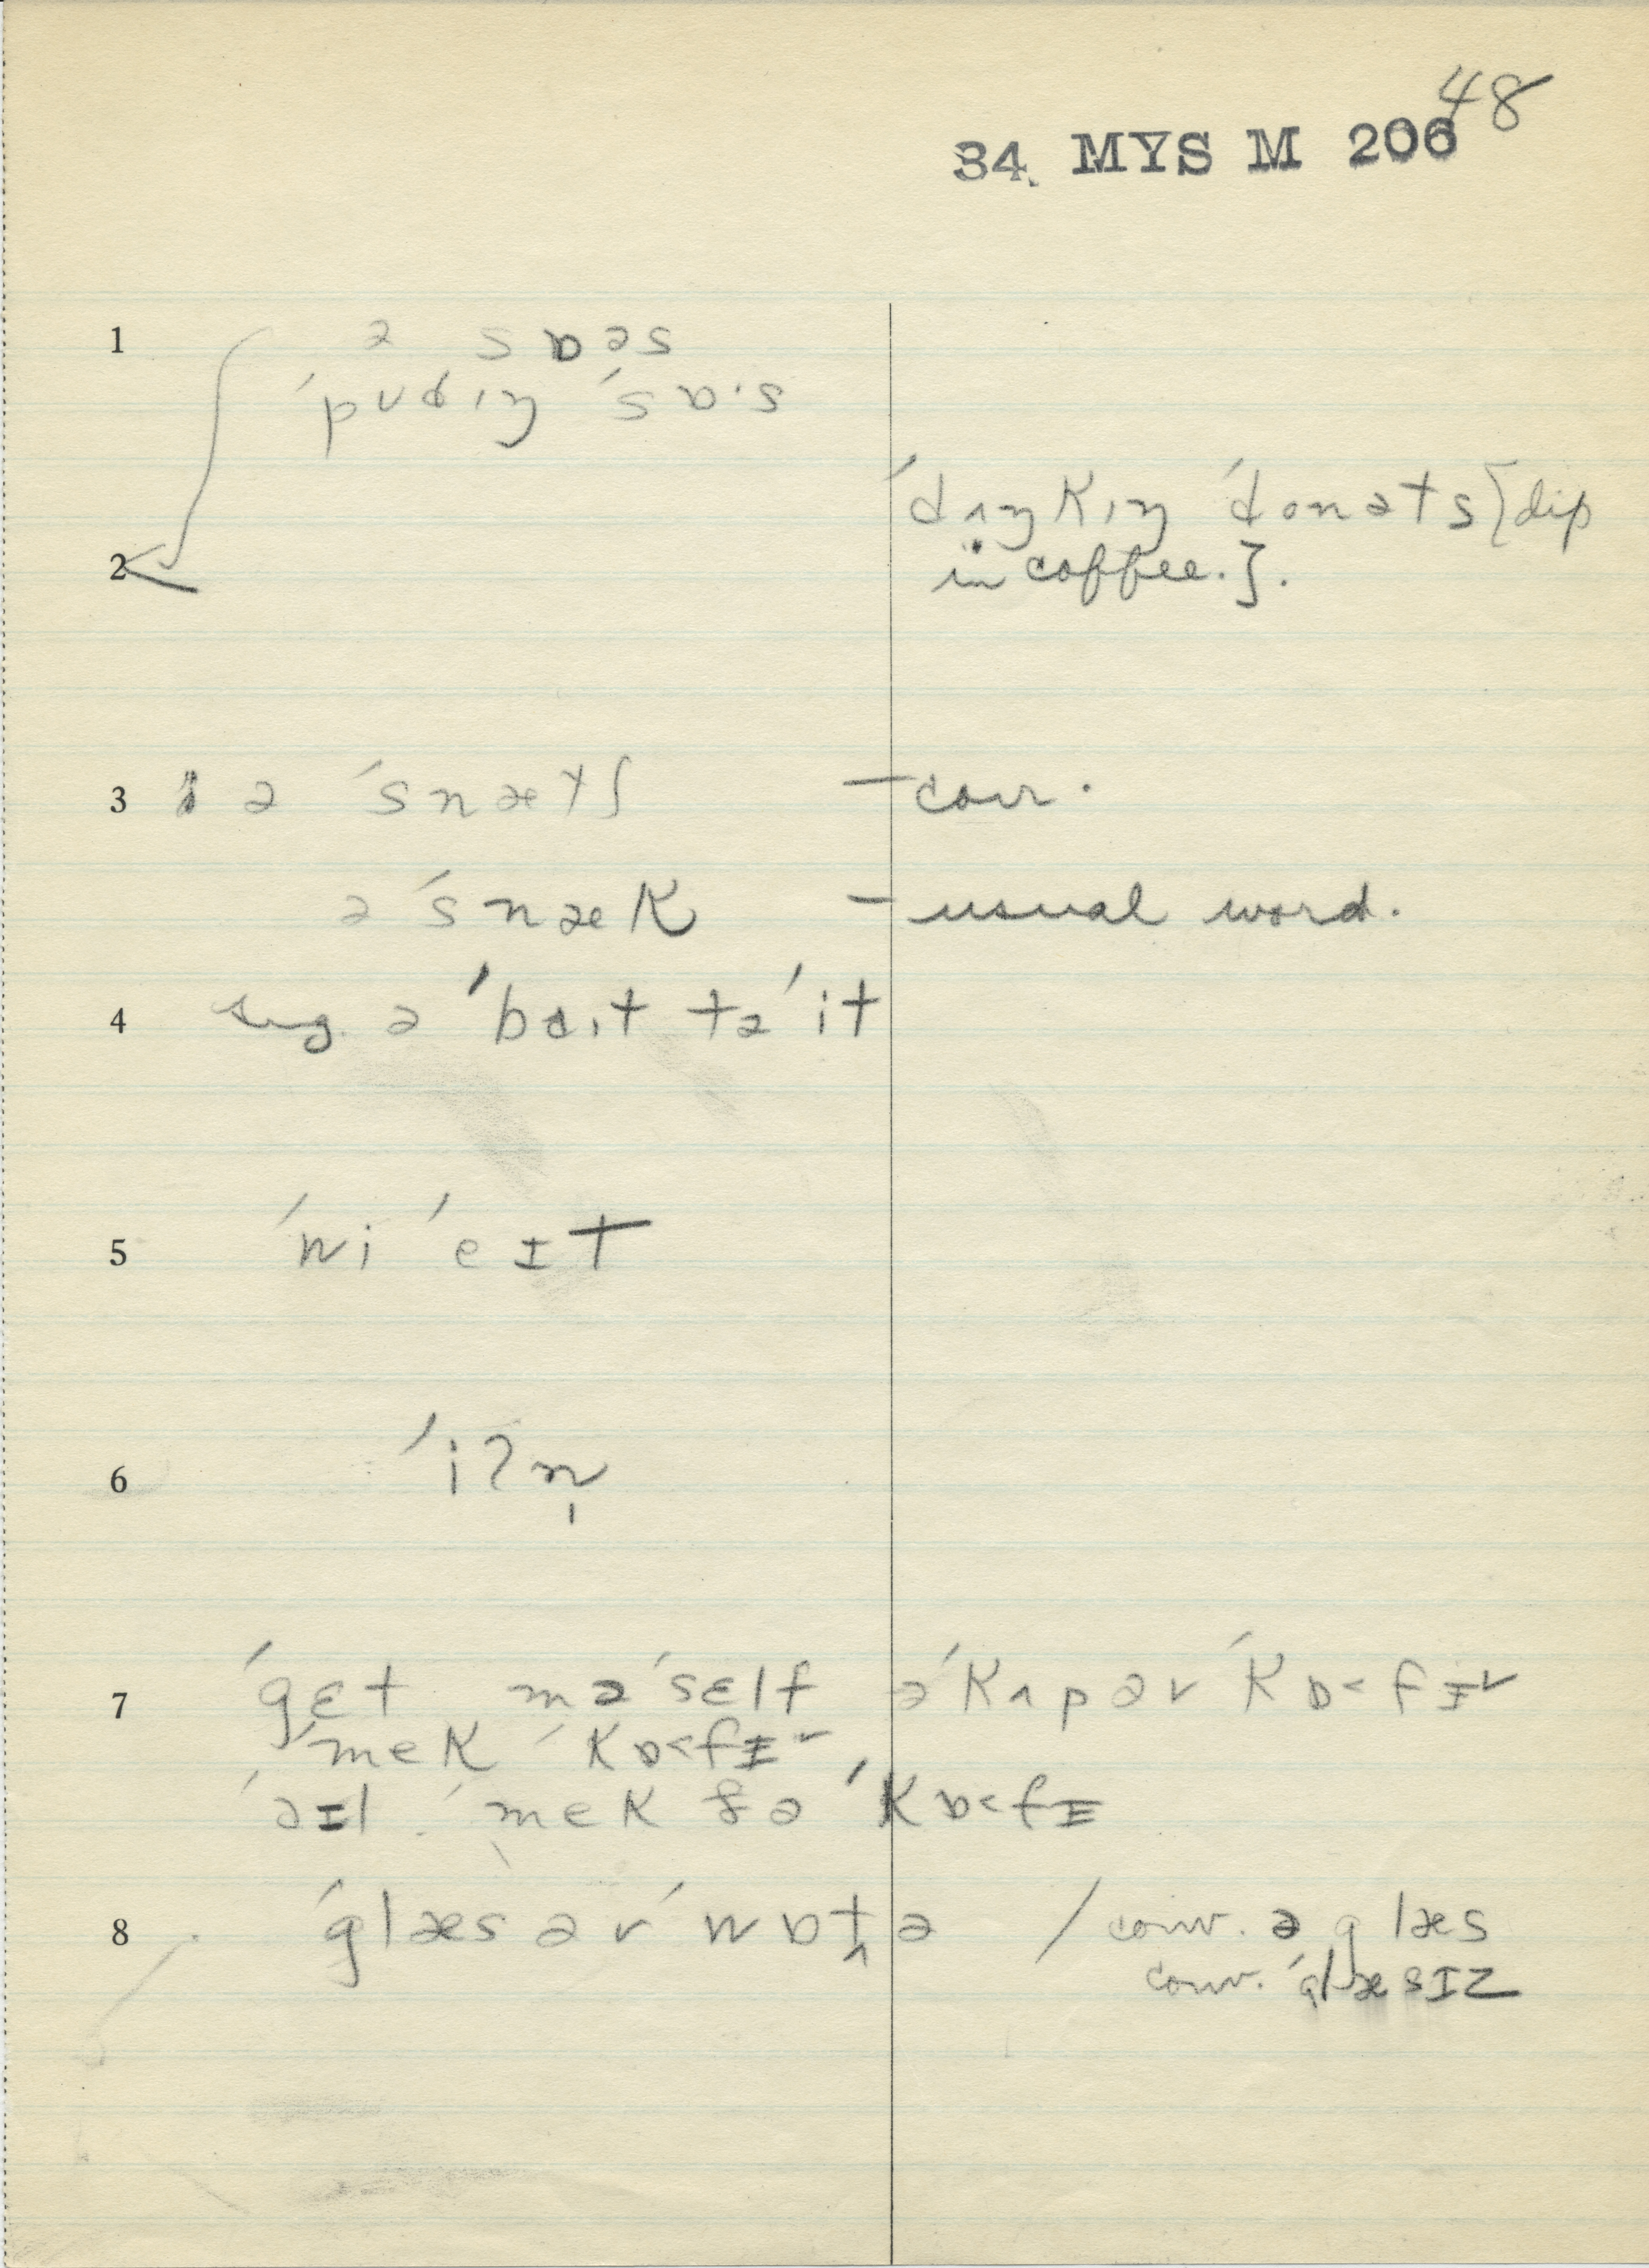 48
34. MYS M 206
1 ə sɒəs
ˈpʊdɪŋ ˈsɒ·s
ˈdʌŋkɪŋ ˈdonəts [dip
2 in coffee.].
3 ə ˈsnætʃ – conv.
ə ˈsnæk – usual word.
4 sug. ə ˈbaɪt təˈit
5 ˈwi ˈeɪt
6 ˈiʔn̩
7 ˈgɛt məˈsɛlf əˈkʌp əv ˈkɒ˂fɪ˅
ˈmek ˈkɒ˂fɪ˅
ˈəɪl ˈmek ðə ˈkɒ˂fɪ
8 ˈglæs əv ˈwɒt̬ə / conv. ə glæs
conv. ˈglæsɪz